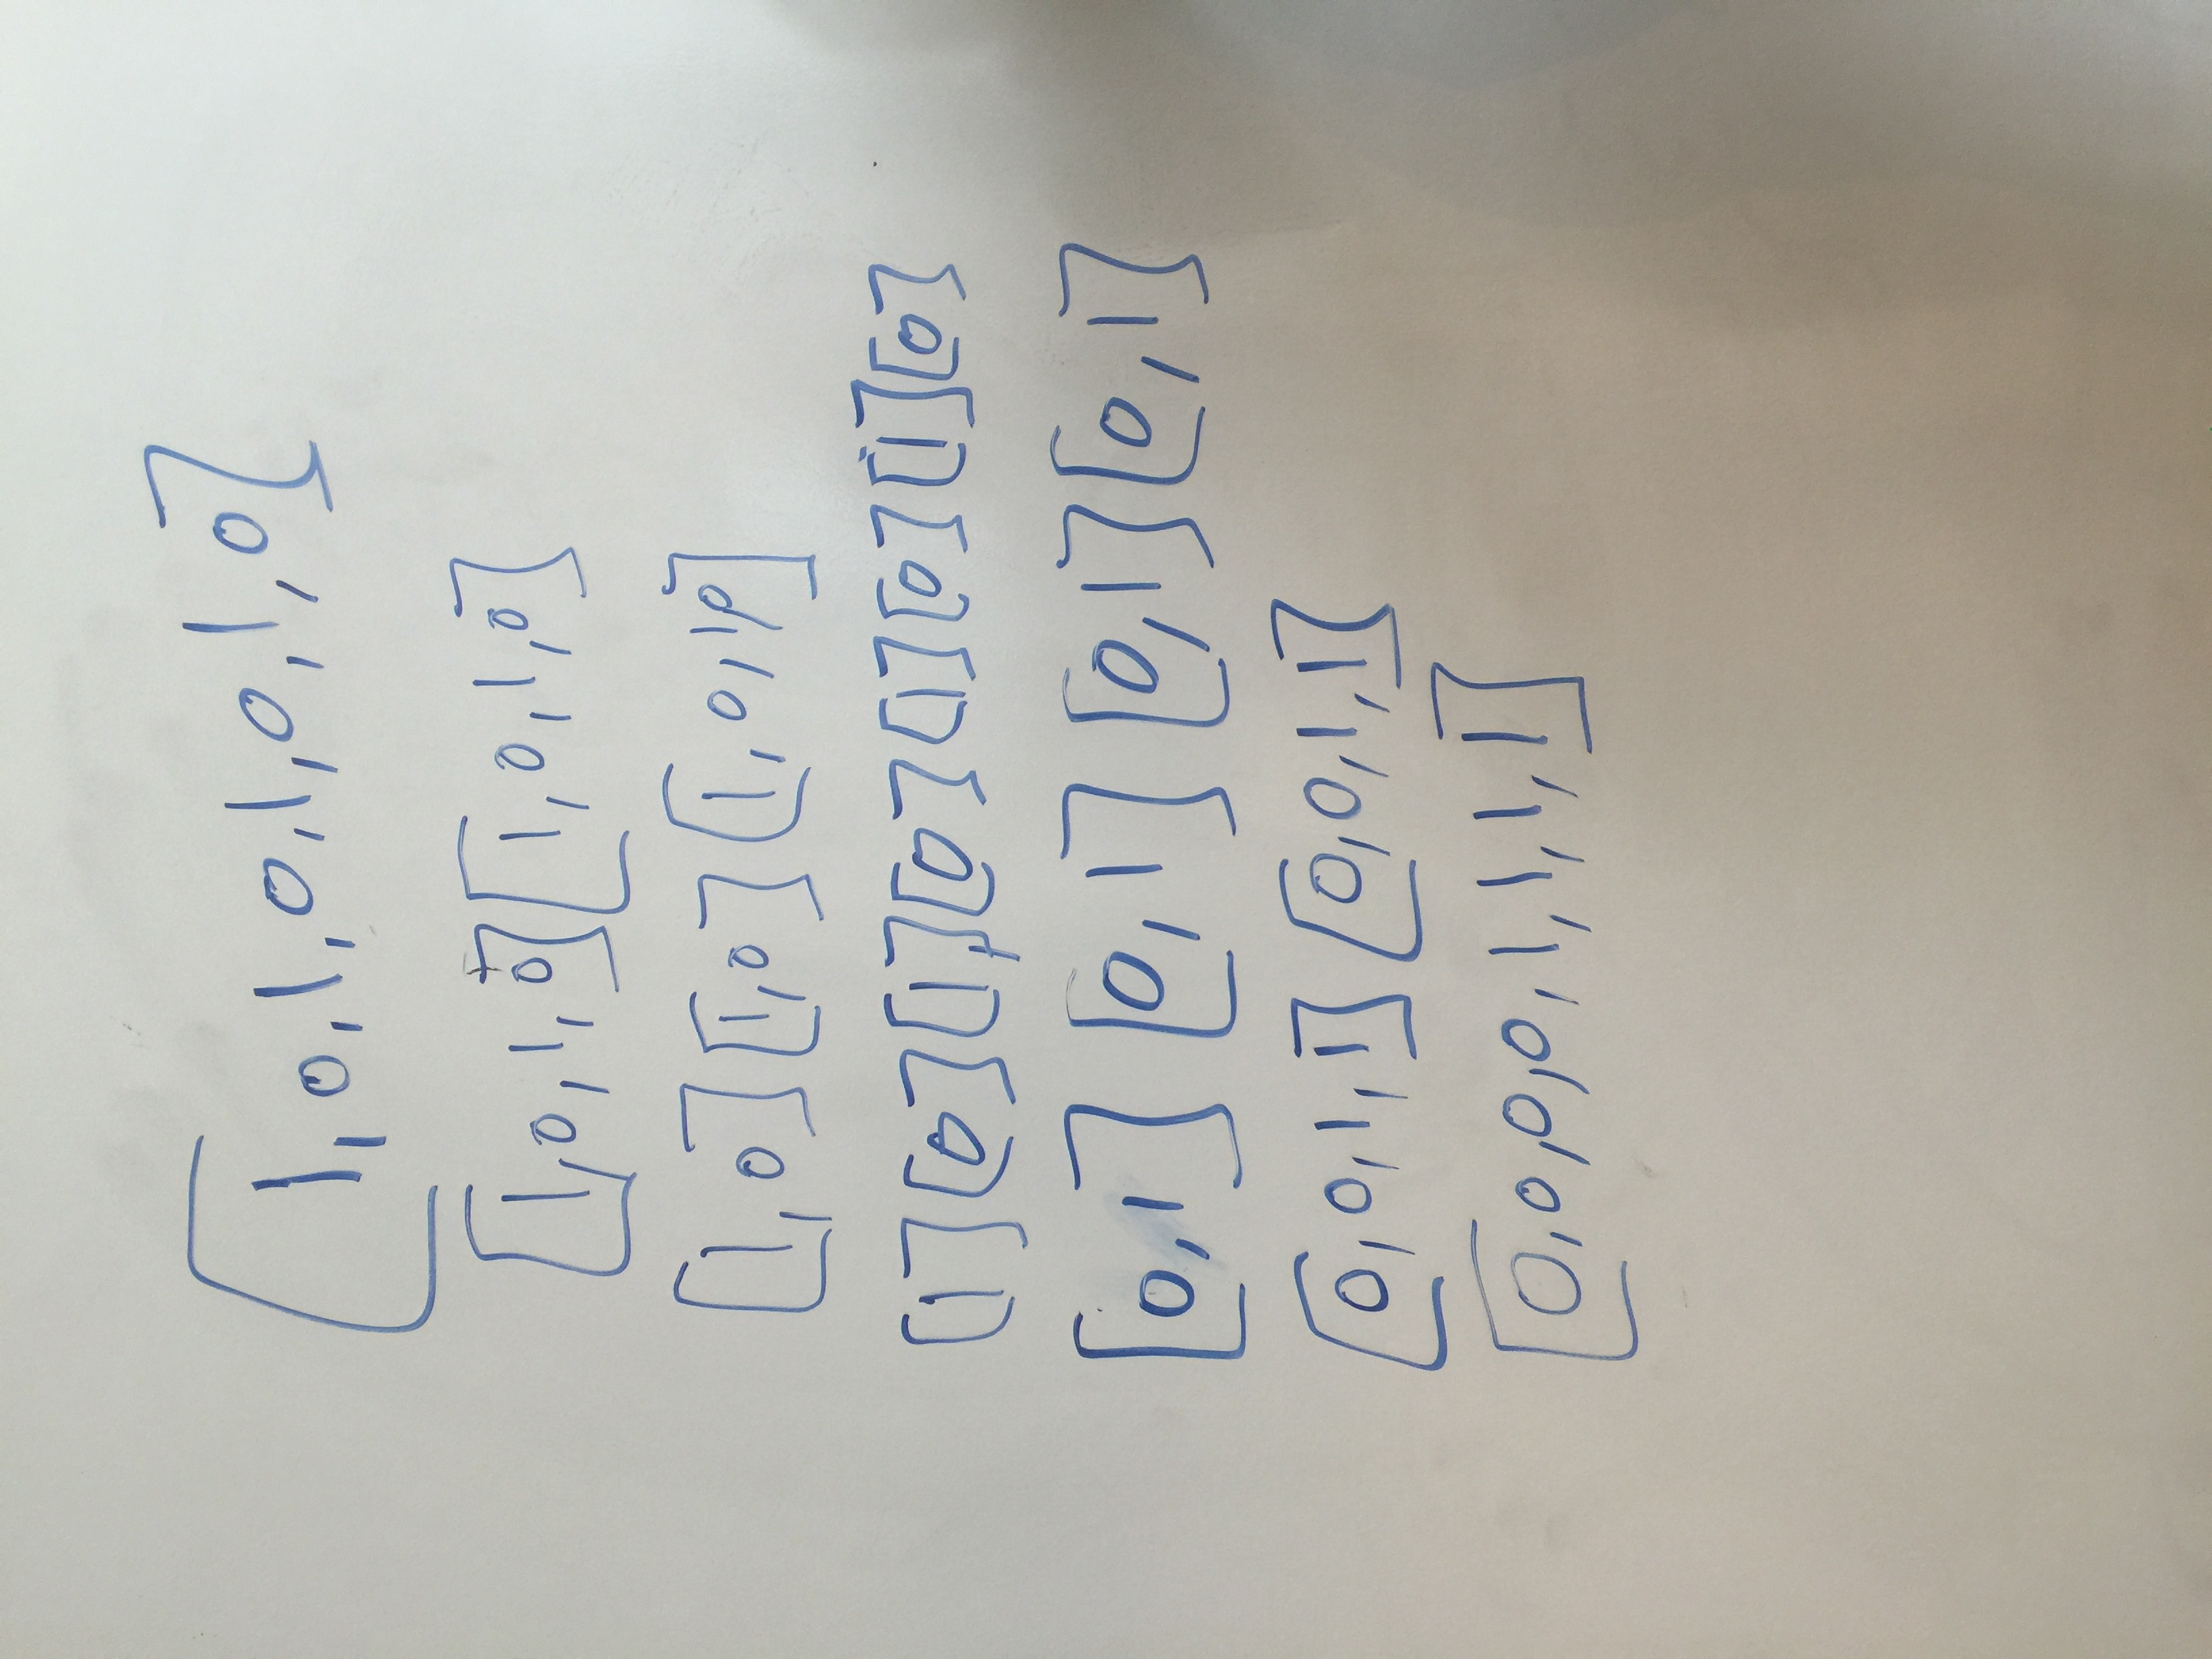 [1,0,1,0,1,0,1,0]
[1,0,1,0][1,0,1,0]
[1,0][1,0][1,0,1,0]
[1][0][1,][0][1][0][1][0]
[0,1][0,1][0,1][0,1]
[0,0,1,1][0,0,1,1]
[0,0,0,0,1,1,1,1]